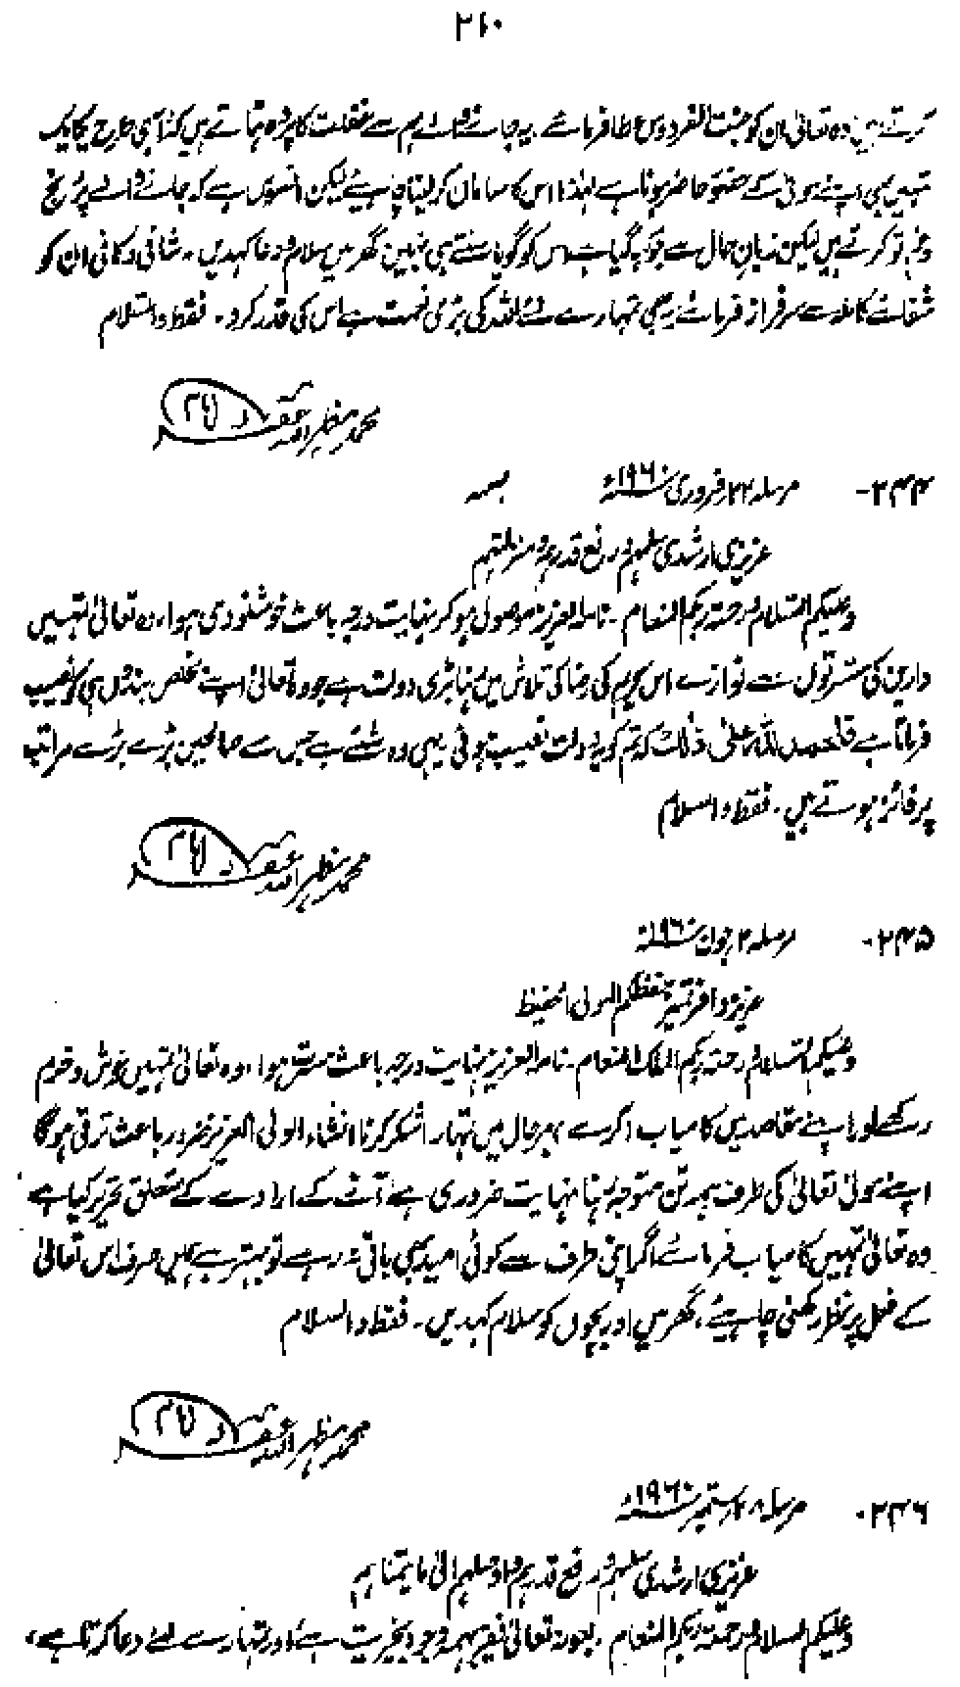 ۲۶۰
کرتے ہیں وہ تعالیٰ ان کو جنت الفردوس عطا فرمائے۔ یہ جانے والے ہم سے غفلت کا پردہ ہٹاتے ہیں کہ اسی طرح یکایک
تمہیں بھی اپنے مولیٰ کے حضور حاضر ہونا ہے لہٰذا اس کا سامان کر لینا چاہیئے لیکن افسوس ہے کہ جانے والے پر رنج
و غم تو کرتے ہیں لیکن زبانِ حال سے جو کہہ گیا ہے اس کو گویا سنتے ہی نہیں گھر میں سلام و دعا کہدیں۔ شافی و کافی ان کو
شفائے کاملہ سے سرفراز فرمائے یہ بھی تمہارے لئے اللہ کی بڑی نعمت ہے اس کی قدر کرو۔ فقط والسلام
محمد مظہر اللہ غفرلہ
۲۴۴- مرسلہ ۲۲ فروری ۱۹۶۰ء
عزیزی ارشدی سلمہم و رفع قدرہم و منزلتہم
وعلیکم السلام ورحمۃ ربکم المنعام۔ نامہ العزیز موصول ہو کر نہایت درجہ باعث خوشنودی ہوا، وہ تعالیٰ تمہیں
دارین کی مسرتوں سے نوازے اس کریم کی رضا کی تلاش میں رہنا بڑی دولت ہے جو وہ تعالیٰ اپنے مخلص بندوں ہی کو نصیب
فرماتا ہے فالحمد للہ علیٰ ذلک کہ تم کو یہ دولت نصیب ہوئی یہی وہ شئے ہے جس سے صالحین بڑے بڑے مراتب
پر فائز ہوتے ہیں۔ فقط والسلام
محمد مظہر اللہ غفرلہ
۲۴۵- مرسلہ ۲ جون ۱۹۶۰ء
عزیز وافر تمیز حفظکم المولی الحفیظ
وعلیکم السلام ورحمۃ ربکم الملک المنعام۔ نامہ العزیز نہایت درجہ باعث مسرت ہوا، وہ تعالیٰ تمہیں خوش و خرم
رکھے اور اپنے مقاصد میں کامیاب کرے ہر حال میں تمہارا شکر کرنا انشاء المولی العزیز ضرور باعث ترقی ہوگا
اپنے مولیٰ تعالیٰ کی طرف ہمہ تن متوجہ رہنا نہایت ضروری ہے آنے کے ارادے کے متعلق تحریر کیا ہے
وہ تعالیٰ تمہیں کامیاب فرمائے اگر اپنی طرف سے کوئی امید بھی باقی نہ رہے تو بہتر ہے ہمیں صرف اس تعالیٰ
کے فضل پر نظر رکھنی چاہیئے، گھر میں اور بچوں کو سلام کہدیں۔ فقط والسلام
محمد مظہر اللہ غفرلہ
۲۴۶- مرسلہ ۲۸ ستمبر ۱۹۶۰ء
عزیزی ارشدی سلمہم و رفع قدرہم و اوصلہم الیٰ ما یتمناہم
وعلیکم السلام ورحمۃ ربکم المنعام۔ بعونہ تعالیٰ فقیر بہمہ وجوہ بخیریت ہے، اور تمہارے لئے دعا کرتا ہے،